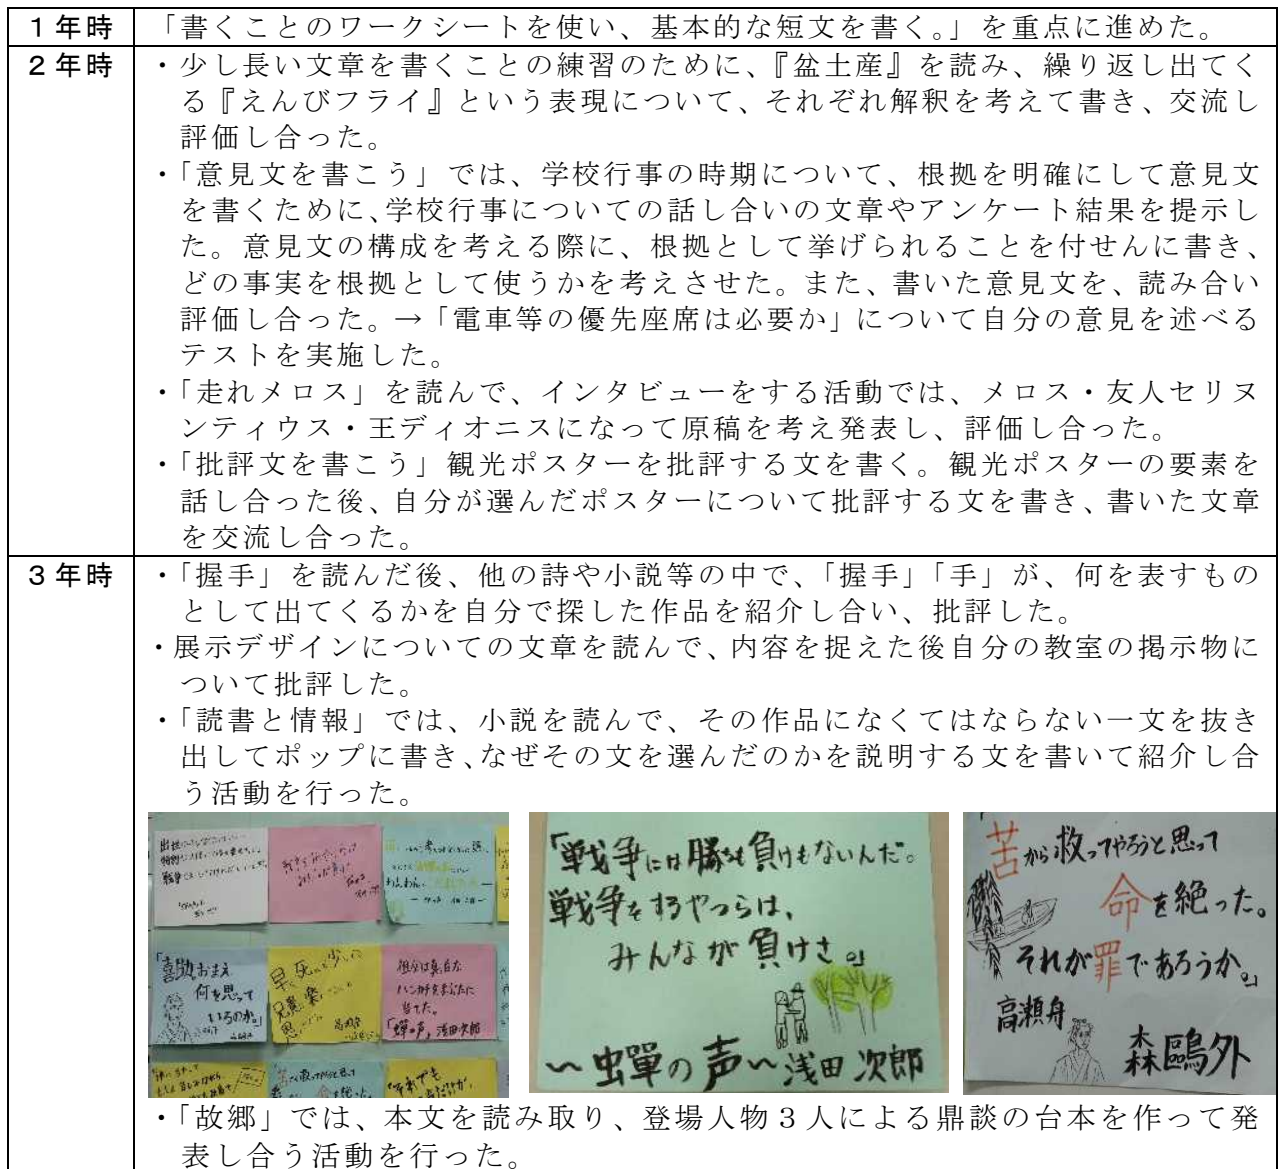 1年時
「書くことのワークシートを使い、基本的な短文を書く。」を重点に進めた。
2年時
・少し長い文章を書くことの練習のために、『盆土産』を読み、繰り返し出てく
る『えんびフライ』という表現について、それぞれ解釈を考えて書き、交流し
評価し合った。
・「意見文を書こう」では、学校行事の時期について、根拠を明確にして意見文
を書くために、学校行事についての話し合いの文章やアンケート結果を提示し
た。意見文の構成を考える際に、根拠として挙げられることを付せんに書き、
どの事実を根拠として使うかを考えさせた。また、書いた意見文を、読み合い
評価し合った。→「電車等の優先座席は必要か」について自分の意見を述べる
テストを実施した。
・「走れメロス」を読んで、インタビューをする活動では、メロス・友人セリヌ
ンティウス・王ディオニスになって原稿を考え発表し、評価し合った。
・「批評文を書こう」観光ポスターを批評する文を書く。観光ポスターの要素を
話し合った後、自分が選んだポスターについて批評する文を書き、書いた文章
を交流し合った。
3年時
・「握手」を読んだ後、他の詩や小説等の中で、「握手」「手」が、何を表すもの
として出てくるかを自分で探した作品を紹介し合い、批評した。
・展示デザインについての文章を読んで、内容を捉えた後自分の教室の掲示物に
ついて批評した。
・「読書と情報」では、小説を読んで、その作品になくてはならない一文を抜き
出してポップに書き、なぜその文を選んだのかを説明する文を書いて紹介し合
う活動を行った。
「喜助おまえ
何を思って
いるのか。」
祖父は真白な
ハンカチをまぶたに
当てた。
「蟬の声」浅田次郎
「戦争には勝ちも負けもないんだ。
戦争をするやつらは、
みんなが負けさ。」
〜蟬の声〜浅田次郎
苦から救ってやろうと思って
命を絶った。
それが罪であろうか。」
高瀬舟
森鷗外
・「故郷」では、本文を読み取り、登場人物3人による鼎談の台本を作って発
表し合う活動を行った。